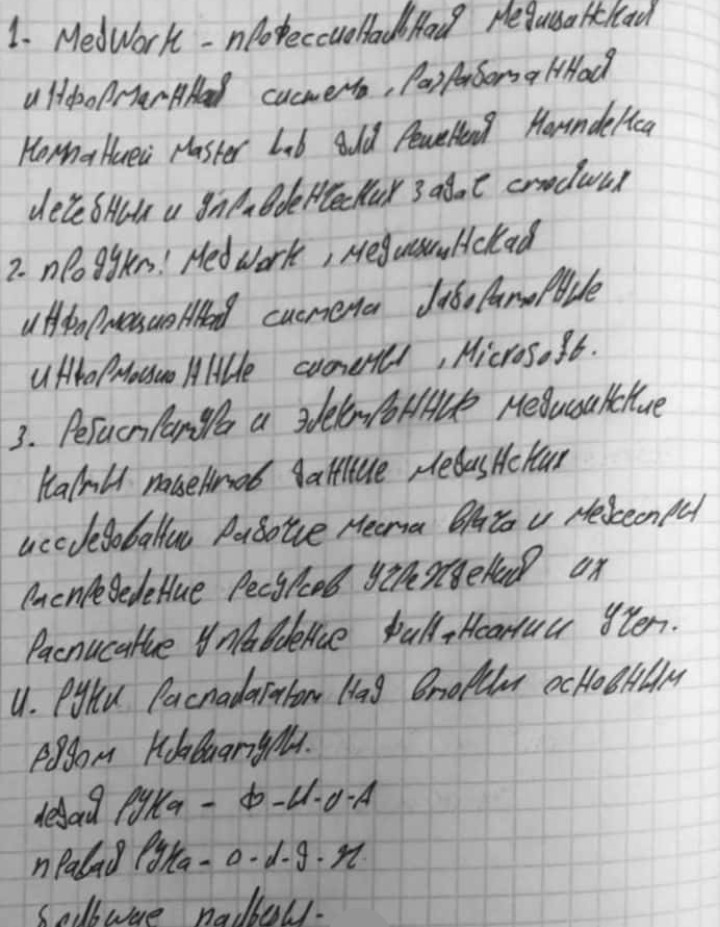 1- MedWork - профессиональная медицинская
информационная система, разработанная
компанией Master Lab для решения комплекса
лечебных и управленческих задач стоящих
2- продукт! Medwork, медицинская
информационная система лабораторные
информационные системы, Microsoft.
3. Регистратура и электронние медицинские
карты пациентов данние медицинских
исследовании рабочие места врача и медсестры
распределение ресурсов учреждений их
расписание управление финансами и учет.
4. Руки распалагатом над вторым основным
рядом клавиатуры.
левая рука - Ф-Ы-В-А
правая рука - О-Л-Д-Ж
большие пальцы-